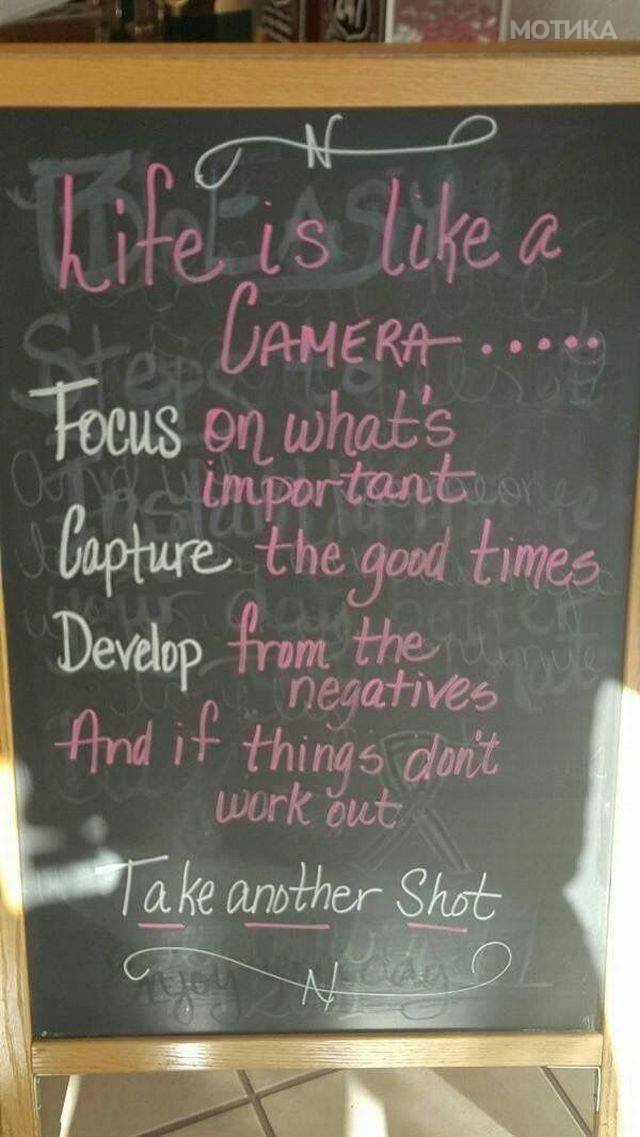 МОТИКА
N
Life is like a
CAMERA......
Focus on what's
important
Capture the good times
Develop from the
negatives
And if things don't
work out
Take another Shot
N